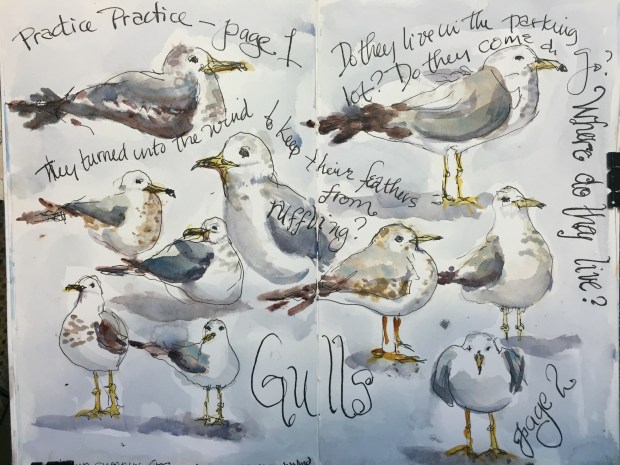 Practice Practice - page 1
They turned into the wind to keep their feathers
from
ruffling?
Do they live in the parking
lot? Do they come &
go? Where do they live?
Gulls
page 2